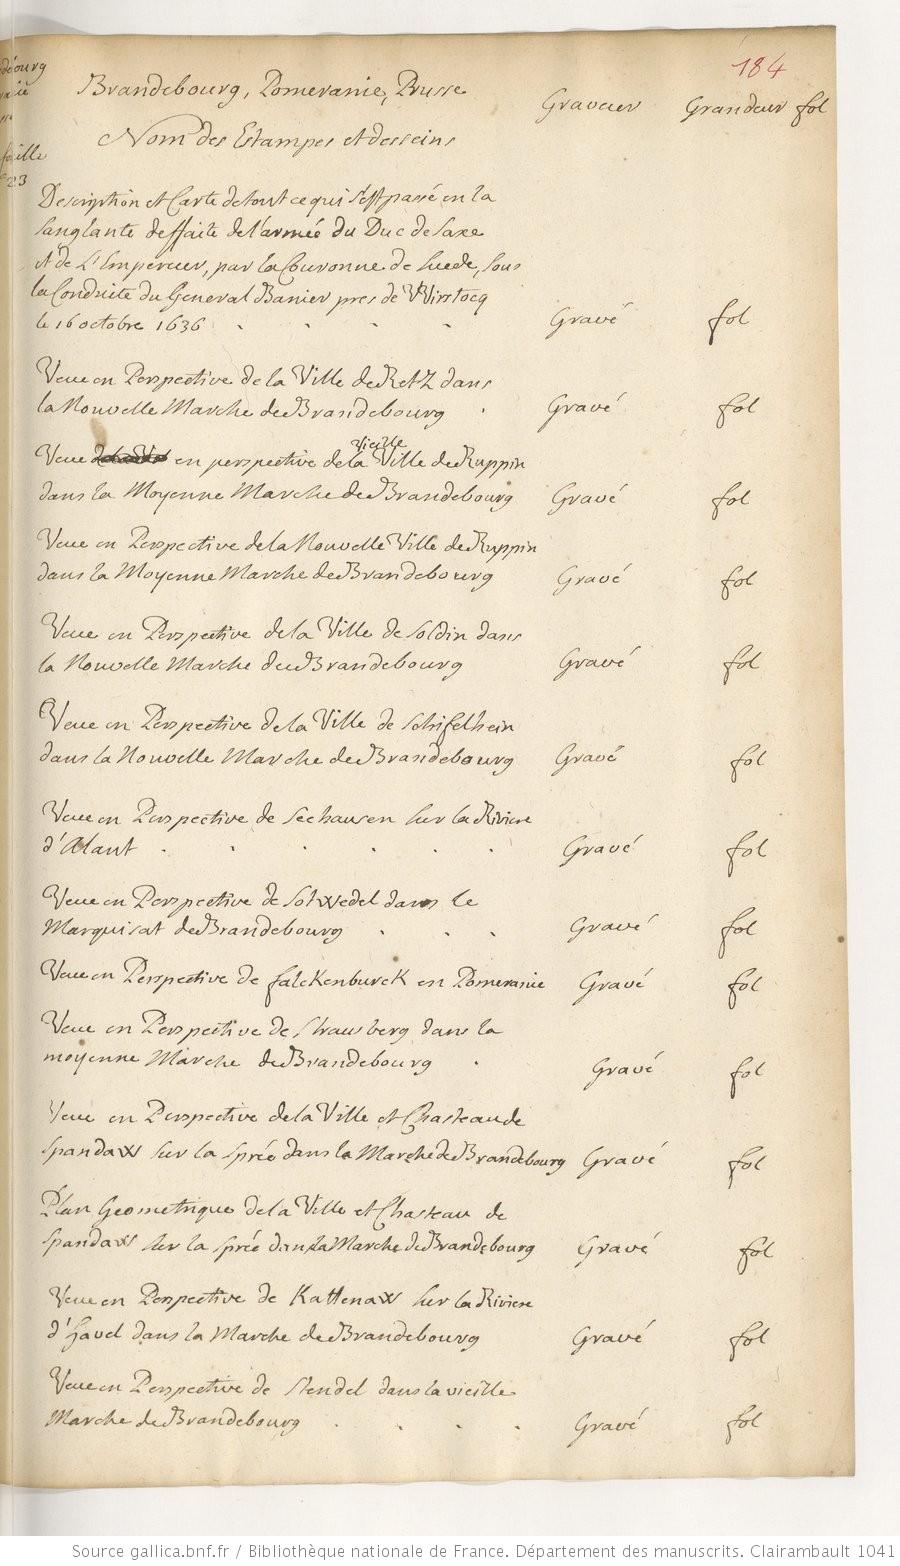 184
Brandebourg, Pomeranie, Prusse
Graveur Grandeur fol
Nom des Estampes et desseins
Description et Carte de tout ce qui s'est passé en la
sanglante deffaite de l'armée du Duc de Saxe
et de L'Empereur, par la Couronne de Suede, sous
la Conduite du General Banier pres de Wirstocq
le 16 octobre 1636 . . . . Gravé fol
Veue en Perspective de la Ville de Retz dans
la Nouvelle Marche de Brandebourg . Gravé fol
Vieille
Veue en perspective de la Ville de Ruppin
dans la Moyenne Marche de Brandebourg Gravé fol
Veue en Perspective de la Nouvelle Ville de Ruppin
dans la Moyenne Marche de Brandebourg Gravé fol
Veue en Perspective de la Ville de Soldin dans
la Nouvelle Marche de Brandebourg Gravé fol
Veue en Perspective de la Ville de Schifelhein
dans la Nouvelle Marche de Brandebourg Gravé fol
Veue en Perspective de Seehausen sur la Riviere
d'Alant . . . . . . Gravé fol
Veue en Perspective de Solwedel dans le
Marquisat de Brandebourg . . . Gravé fol
Veue en Perspective de falckenburck en Pomeranie Gravé fol
Veue en Perspective de Strausberg dans la
moyenne Marche de Brandebourg . Gravé fol
Veue en Perspective de la Ville et Chasteau de
Spandaw sur la Sprée dans la Marche de Brandebourg Gravé fol
Plan Geometrique de la Ville et Chasteau de
Spandaw sur la Sprée dans la Marche de Brandebourg Gravé fol
Veue en Perspective de Kattenaw sur la Riviere
d'Havel dans la Marche de Brandebourg Gravé fol
Veue en Perspective de Stendel dans la vieille
Marche de Brandebourg . . . . Gravé fol
Source gallica.bnf.fr / Bibliothèque nationale de France. Département des manuscrits. Clairambault 1041